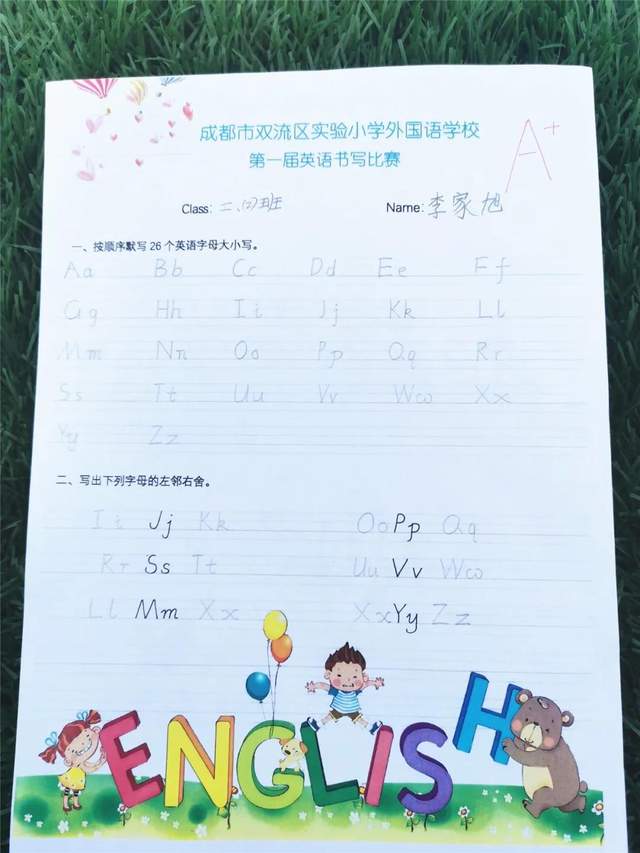 成都市双流区实验小学外国语学校
第一届英语书写比赛
A+
Class: 二.(2)班 Name: 李家旭
一、按顺序默写26个英语字母大小写。
Aa Bb Cc Dd Ee Ff
Gg Hh Ii Jj Kk Ll
Mm Nn Oo Pp Qq Rr
Ss Tt Uu Vv Ww Xx
Yy Zz
二、写出下列字母的左邻右舍。
Ii Jj Kk Oo Pp Qq
Rr Ss Tt Uu Vv Ww
Ll Mm Xx Xx Yy Zz
ENGLISH